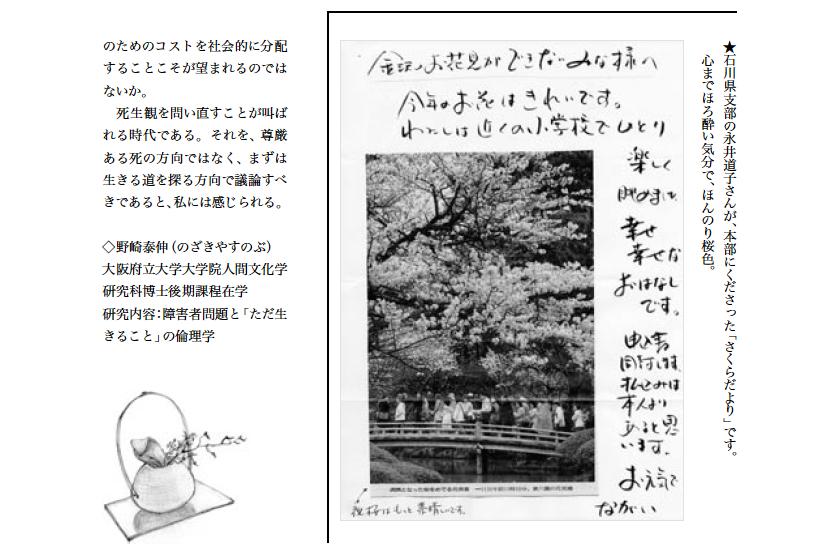 のためのコストを社会的に分配
することこそが望まれるのでは
ないか。
　死生観を問い直すことが叫ば
れる時代である。それを、尊厳
ある死の方向ではなく、まずは
生きる道を探る方向で議論すべ
きであると、私には感じられる。
◇野崎泰伸(のざきやすのぶ)
大阪府立大学大学院人間文化学
研究科博士後期課程在学
研究内容：障害者問題と「ただ生
きること」の倫理学
★石川県支部の永井道子さんが、本部にくださった「さくらだより」です。
心までほろ酔い気分で、ほんのり桜色。
金沢のお花見ができないみな様へ
今年のお花はきれいです。
わたしは近くの小学校でひとり
楽しく
眺めました
幸せ
幸せな
おはなし
です。
同封します
本人より
あると思
います。
お元気で
ながい
桜はもっと素晴しいです。